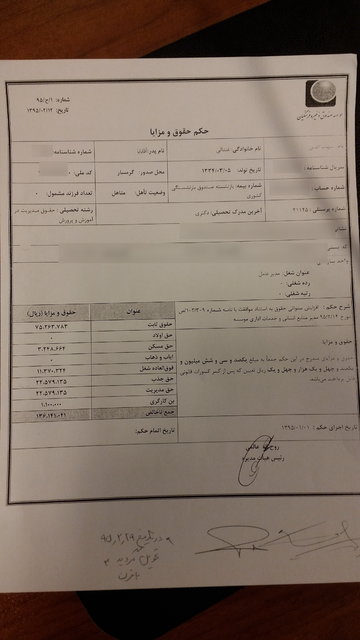 شماره: ۹۵/ح/۱
تاریخ: ۱۳۹۵/۰۲/۱۲
حکم حقوق و مزایا
نام خانوادگی:
نام پدر:
شماره شناسنامه:
سریال شناسنامه:
تاریخ تولد: ۱۳۳۴/۰۳/۰۵
محل صدور: گرمسار
کد ملی:
شماره حساب:
شماره بیمه: بازنشسته صندوق بازنشستگی کشوری
وضعیت تأهل: متاهل
تعداد فرزند مشمول: ۰
شماره پرسنلی: ۲۱۱۲۵
آخرین مدرک تحصیلی: دکتری
رشته تحصیلی: حقوق مدیریت در آموزش و پرورش
کد پستی
عنوان شغل: مدیرعامل
رده شغلی: ۰
رتبه شغلی: ۰
شرح حکم: افزایش سنواتی حقوق به استناد موافقت با نامه شماره ۱۰۳/۳۰۹/ص
مورخ ۹۵/۲/۱۲ مدیر منابع انسانی و خدمات اداری موسسه
حقوق و مزایا:
حقوق و مزایای مندرج در این حکم جمعاً به مبلغ یکصد و سی و شش میلیون و
یکصد و چهل و یک هزار و چهل و یک ریال تعیین که پس از کسر کسورات قانونی
پرداخت می‌باشد.
عنوان
حقوق و مزایا (ریال)
حقوق ثابت
۷۵,۲۶۳,۷۸۳
حق اولاد
۰
حق مسکن
۳,۲۴۸,۶۶۴
ایاب و ذهاب
۰
فوق‌العاده شغل
۱۱,۳۷۰,۳۲۴
حق جذب
۲۲,۵۷۹,۱۳۵
حق مدیریت
۲۲,۵۷۹,۱۳۵
بن کارگری
۱,۱۰۰,۰۰۰
جمع ناخالص
۱۳۶,۱۴۱,۰۴۱
تاریخ اجرای حکم: ۱۳۹۵/۰۱/۰۱
تاریخ اتمام حکم:
رئیس هیأت مدیره